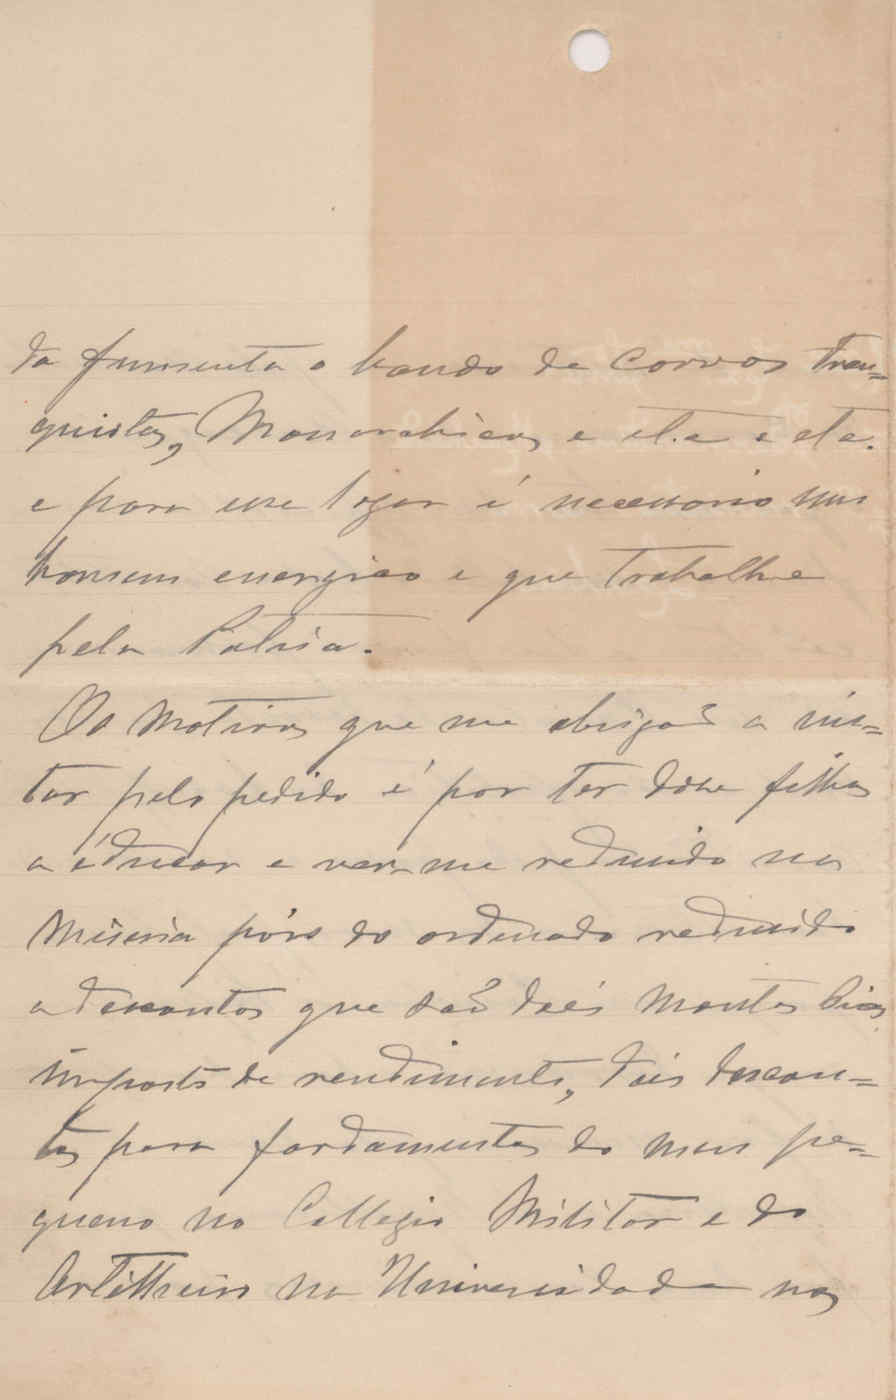 da fumenta o bando de corvos Fran=
quistas, Monarchicos e et.c e etc.
e para esse logar é necessario um
homem energico e que Trabalhe
pela Patria.
Os motivos que me obrigaõ a ins=
tar pelo pedido é por ter doze filhos
a éducar e ver-me reduzido na
miseria póis do ordenado reduzido
a descontos que saõ dois Montes Pios,
imposto de rendimento, dois descon=
tos para fardamentos do meu pe=
queno no Collegio Militar e do
Artilheiro na Universidade nos